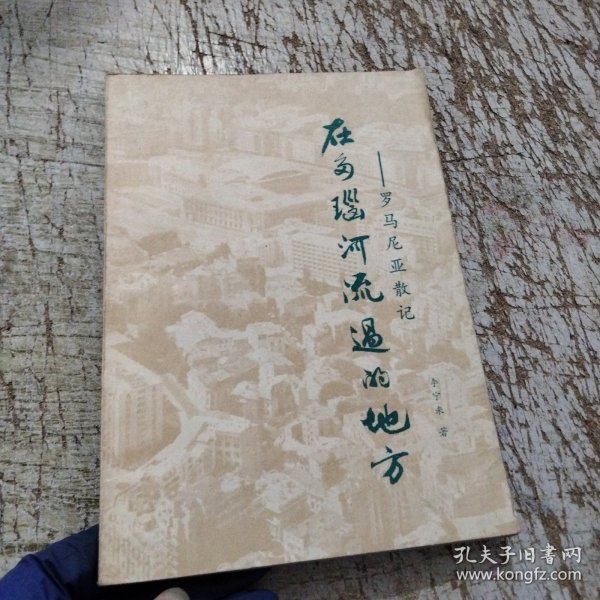 在多瑙河流過的地方
——罗马尼亚散记
李宁来 著
孔夫子旧书网
www.kongfz.com